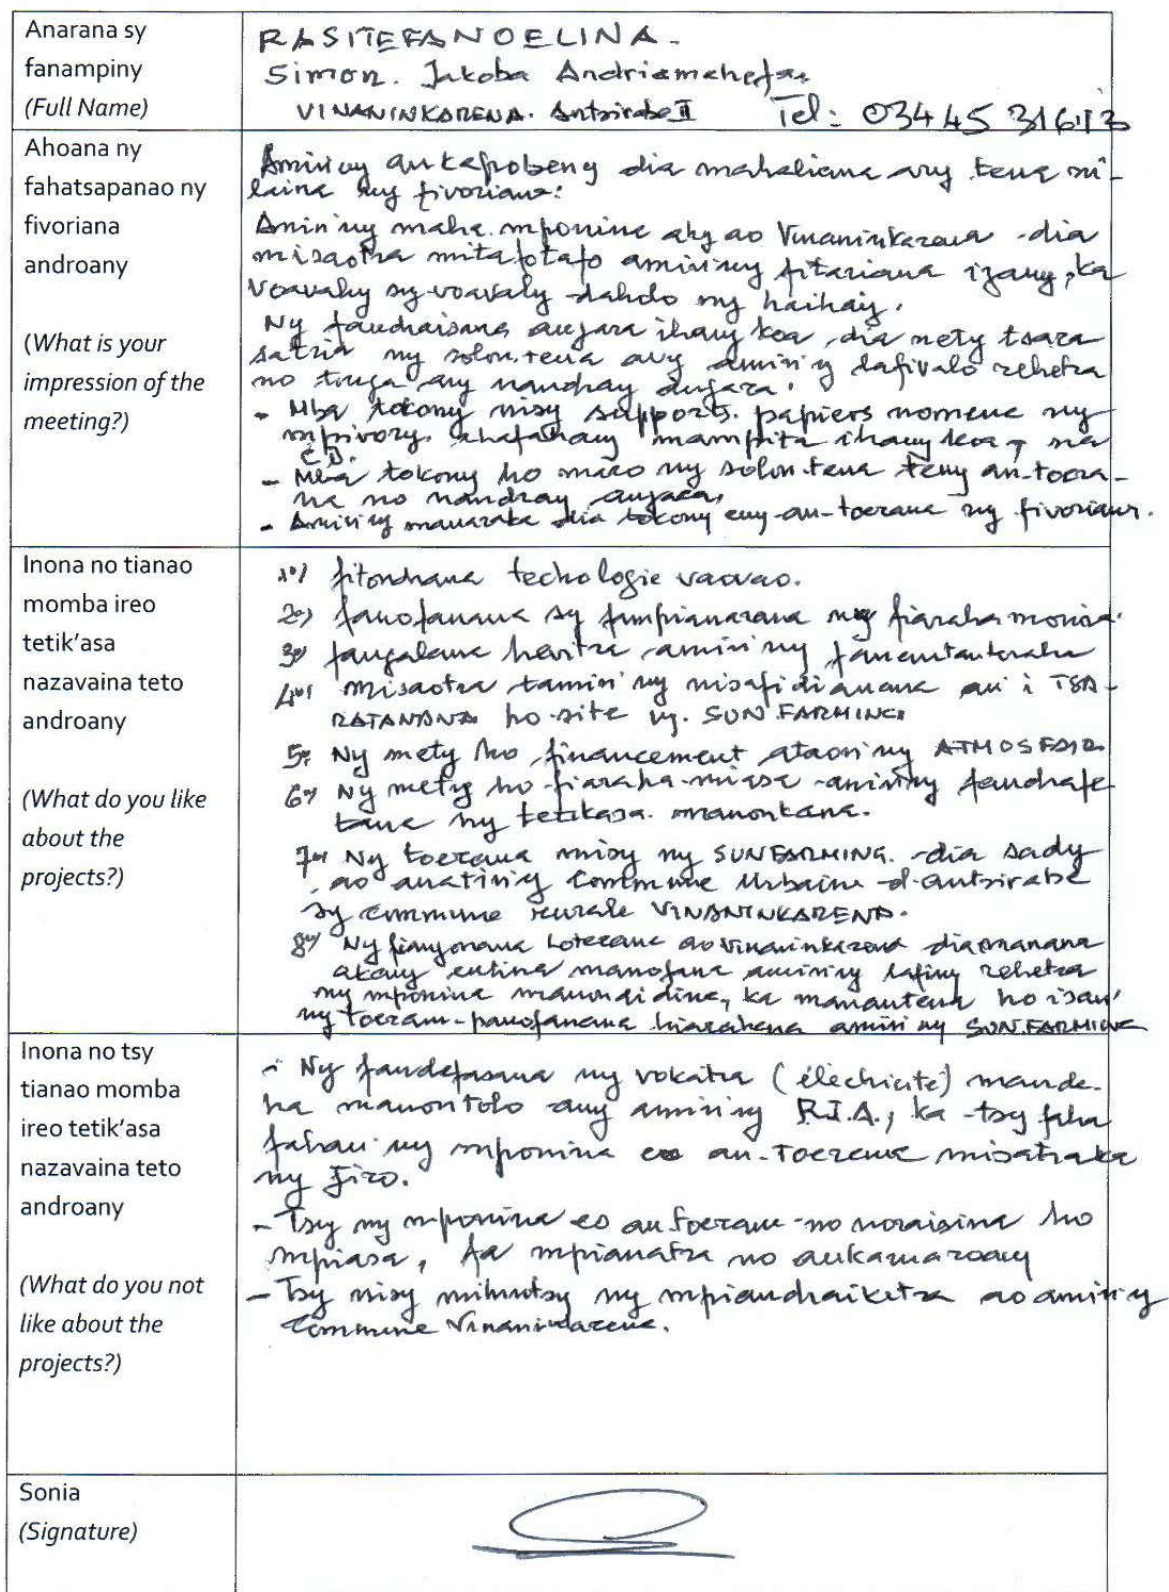 Anarana sy
fanampiny
(Full Name)
RASITEFANOELINA.
Simon. Jakoba Andriamahefa.
VINANINKARENA. Antsirabe II Tel: 034 45 316 13
Ahoana ny
fahatsapanao ny
fivoriana
androany
(What is your
impression of the
meeting?)
Amin'ny ankapobeny dia mahaliana ary tena mi-
laina ny fivoriana:
Amin'ny maha. mponina ahy ao Vinaninkarena -dia
misaotra mitafotafo amin'iny fitariana izany, ka
voavahy sy voavaly -dahdo ny haihay.
Ny fandraisana anjara ihany koa, dia nety tsara
satria ny solon.tena avy amin'ny lafivalo rehetra
no tonga, ary nandray anjara.
- Mba tokony nisy supports. papiers nomena ny
mpivory. ahafahany mampita ihany koa, na
CD.
- Mba tokony ho maro ny solon.tena teny an-toera-
na no nandray anjara.
- Amin'ny manaraka dia tokony eny-an-toerana ny fivoriana.
Inona no tianao
momba ireo
tetik'asa
nazavaina teto
androany
(What do you like
about the
projects?)
1°/ fitondrana techologie vaovao.
2°/ fanofanana sy fampianarana ny fiaraha monina.
3°/ fangalana hevitra amin'ny fanantanteraha
4°/ misaotra tamin'ny nisafidianana an' i TSA-
RATANANA ho site ny. SUN FARMING.
5°/ Ny mety ho financement ataon'ny ATMOSFAIR.
6°/ Ny mety ho fiaraha-miasa amin'ny fandrafe
tana ny tetikasa. manontana.
7°/ Ny toerana misy ny SUNFARMING. -dia sady
ao anatin'ny Commune Urbaine d'antsirabe
sy commune rurale VINANINKARENA.
8°/ Ny fiangonana Loterana ao Vinaninkarena dia manana
akany entina manofana amin'ny lafiny rehetra
ny mponina manondidina, ka manantena ho isan'
ny toeram-panofanana hiarahana amin'ny SUN.FARMING
Inona no tsy
tianao momba
ireo tetik'asa
nazavaina teto
androany
(What do you not
like about the
projects?)
- Ny fandefasana ny vokatra (électricité) mande-
ha manontolo any amin'ny R.I.A., ka -tsy faha
fahan'ny mponina eo an-toerana misatraka
ny jiro.
- Tsy ny mponina eo an toerana no noraisina ho
mpiasa, fa mpianatra no ankamaroany
- Tsy nisy mihintsy ny mpiandraikitra ao amin'ny
Commune Vinaninkarena.
Sonia
(Signature)